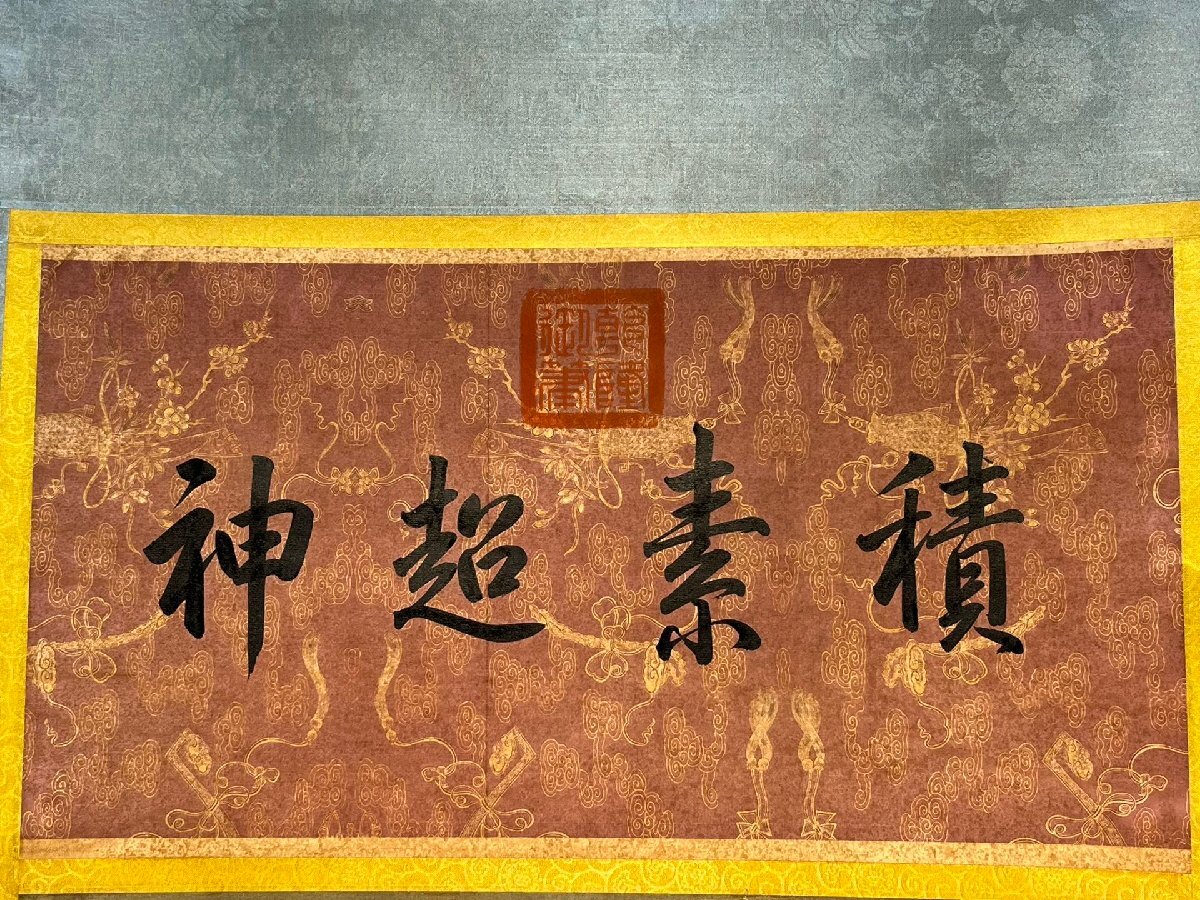 乾隆
御筆
積素超神